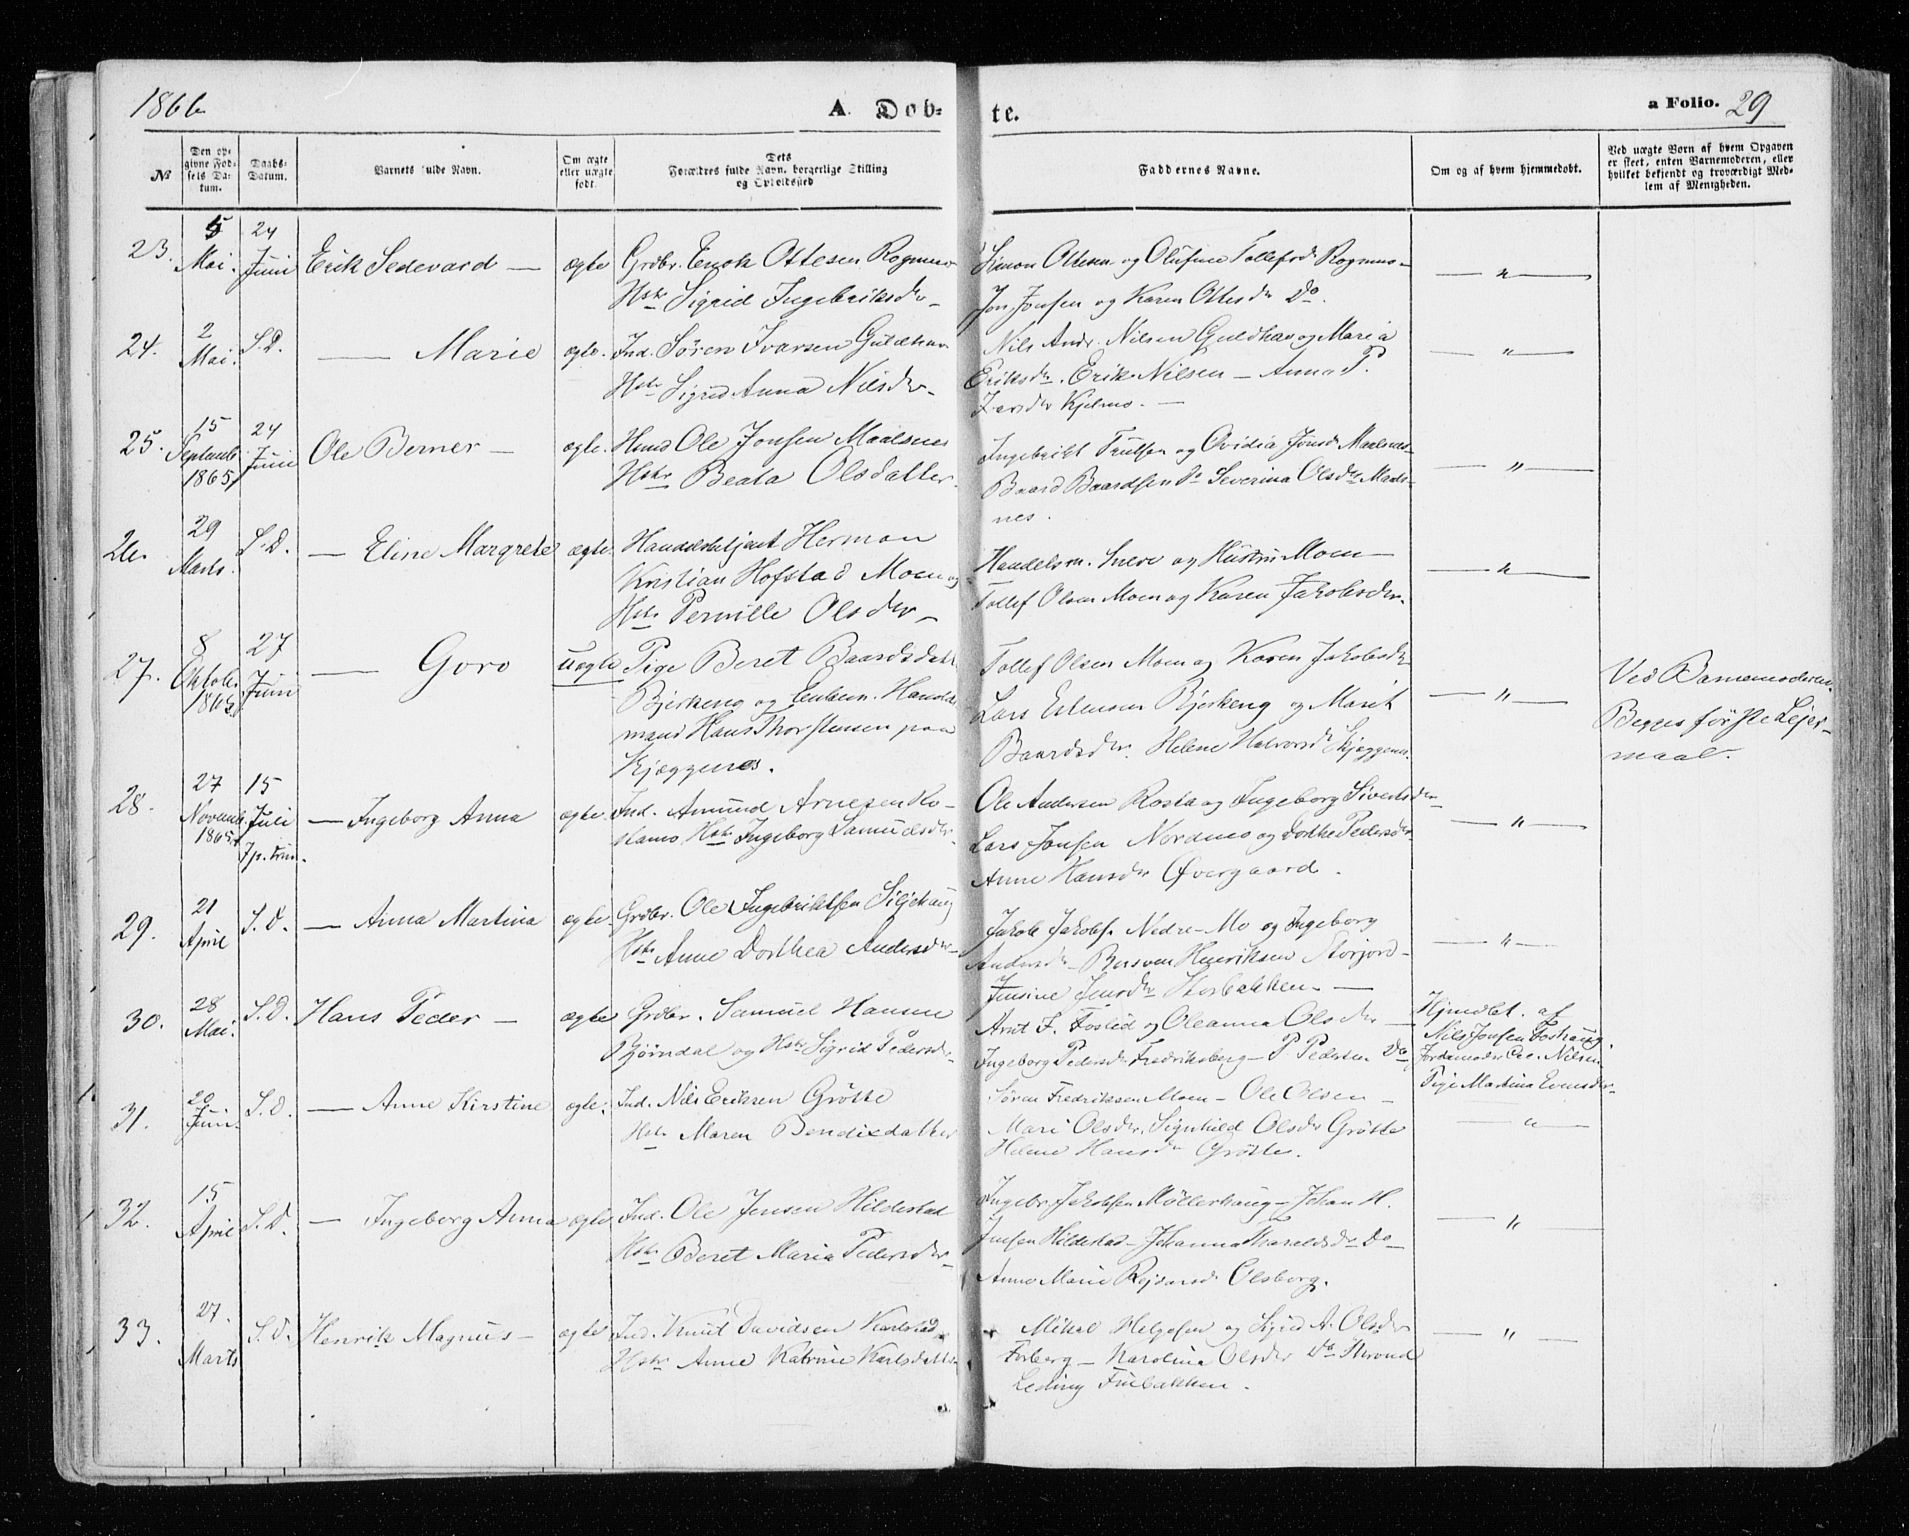 1866
A. Døb-
te.
a Folio. 29
№
Den op-
givne Fød-
sels Da-
tum.
Daabs-
Datum.
Barnets fulde Navn.
Om ægte
eller uægte
født.
Dets
Forældres fulde Navn, borgerlige Stilling
og Opholdssted
Faddernes Navne.
Om og af hvem hjemmedøbt.
Ved uægte Børn af hvem Opgaven
er skeet, enten Barnemoderen, eller
hvilket bekjendt og troværdigt Med-
lem af Menigheden.
23. 5 Mai. 24 Juni Erik Sedevard — ægte Grdbr. Enok Ottesen Rognmo
Hstr Sigrid Ingebriksdr —
Simon Ottesen og Olufine Tollefsdr Rognmo —
Jon Jonsen og Karen Ottesdr Do. — " —
24. 2 Mai. S.D. — Marie ægte. Ind. Søren Ivarsen Guldhav
Hstr Sigrid Anna Nilsdr —
Nils Andr. Nilsen Guldhav og Maria
Eriksdr. Erik Nilsen — Anna P.
Kjelmo. — " —
25. 15 Septemb. 1865 24 Juni Ole Berner — ægte. Hmd Ole Jonsen Maalsnes
Hstr Beata Olsdatter.
Ingebrikt Trulsen og Ovidia Jonsdr Maalsnes —
Baard Baardsen Do Severina Olsdr Maals-
nes. — " —
26. 29 Marts. S.D. — Eline Margrete ægte. Handelsbetjent Herman
Kristian Hofstad Moen og
Hstr Pernille Olsdr —
Handelsm. og Hustru Moen —
Tollef Olsen Moen og Karen Jakobsdr. — " —
27. 8 Oktob. 1865 27 Juni — Goro uægte Pige Beret Baardsdatt
Bjerkeng og Enkem. Handels
mand Hans Thorstensen paa
Kjæggenes.
Tollef Olsen Moen og Karen Jakobsdr
Lars Estensen Bjerkeng og Marit
Baardsdr. Helene Halvorsdr Kjæggenes. — " —
Ved Barnemoderen.
Begges første Lejer-
maal.
28. 27 Novemb. 1865 15 Juli 7 p. trin. — Ingeborg Anna ægte. Ind. Amund Arnesen Ro-
Hstr Ingeborg Samuelsdr.
Ole Andersen Rosta og Ingeborg Sivertsdr —
Lars Jonsen Nordmo og Dorthe Pedersdr
Anne Hansdr Øvergaard. — " —
29. 21 April S.D. — Anna Martina ægte. Grdbr. Ole Ingebriktsen Siljehaug
Hstr Anne Dorthea Andersdr —
Jakob Jakobs. Nedre-Mo og Ingeborg
Andersdr — Bersven Henriksen Storjord —
Jensine Jensdr Storbakken. — " —
30. 28 Mai. S.D. Hans Peder — ægte Grdbr. Samuel Hansen
Bjørndal og Hstr Sigrid Pedersdr.
Arnt F. Foslid og Oleanna Olsdr —
Ingeborg Pedersdr Fredriksberg — P. Pedersen Do
Hjmdbt. af
Nils Jonsen Foshaug.
Jordemoder Nilsen
Pige Martina Evensdr —
31. 20 Juni. S.D. — Anne Kirstine ægte. Ind. Nils Eriksen Grøtte
Hstr Maren Bendixdatter
Søren Fredriksen Moen — Ole Olsen —
Mari Olsdr. Signhild Olsdr Grøtte
Helene Hansdr Grøtte. — " —
32. 15 April S.D. — Ingeborg Anna ægte Ind. Ole Jensen Hildestad
Hstr Beret Maria Pedersdr —
Ingebr. Jakobsen Møllerhaug — Johan H.
Jensen Hildestad — Johanna Do —
Anne Marie Olsborg. — " —
33. 27. Marts S.D. Henrik Magnus — ægte Ind. Knut Davidsen Karlstad
Hstr Anne Katrine Karlsdatter
Mikal Helgesen og Sigrid A. Olsdr
Forberg — Karolina Olsdr Do Thrond
Finbakken. — " —